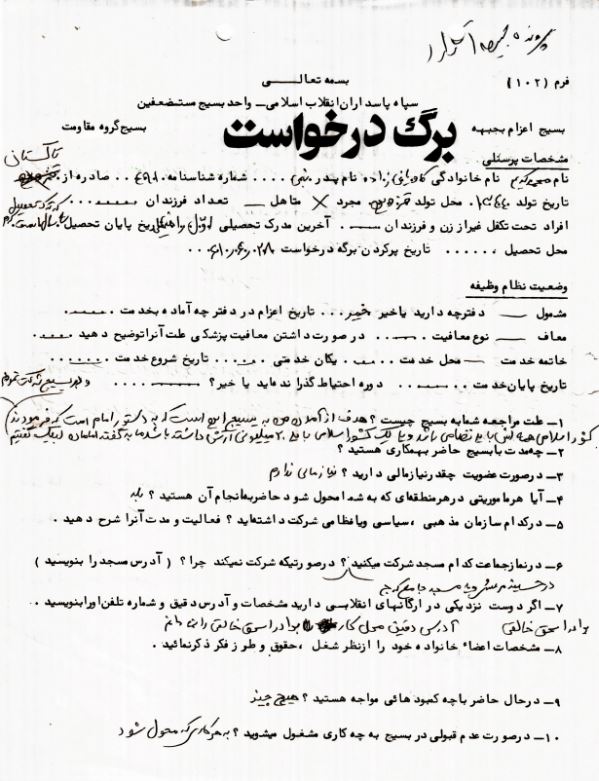 پرونده
بسمه تعالی
فرم (۱۰۲)
سپاه پاسداران انقلاب اسلامی ــ واحد بسیج مستضعفین
بسیج اعزام بجبهه
برگ درخواست
بسیج گروه مقاومت
مشخصات پرسنلی
تاکستان
نام نام خانوادگی نام پدر .... شماره شناسنامه صادره از
تاریخ تولد محل تولد مجرد × متاهل ــ تعداد فرزندان ......
افراد تحت تکفل غیر از زن و فرزندان ــ آخرین مدرک تحصیلی تاریخ پایان تحصیل
محل تحصیل ...... تاریخ پرکردن برگه درخواست
وضعیت نظام وظیفه
مشمول ــ دفترچه دارید یا خیر خیر... تاریخ اعزام در دفترچه آماده بخدمت ......
معاف ــ نوع معافیت ...... در صورت داشتن معافیت پزشکی علت آنرا توضیح دهید ......
خاتمه خدمت ــ محل خدمت ...... یکان خدمتی ...... تاریخ شروع خدمت ......
تاریخ پایان خدمت ...... دوره احتیاط گذرانده اید یا خیر؟ ......
۱ــ علت مراجعه شما به بسیج چیست؟ هدف از آمدن به بسیج این است که به دستور امام است که فرمودند
کشور اسلامی همه اش باید نظامی باشد و یا یک کشور اسلامی باید ۲۰ میلیونی ارتش داشته باشد ما به گفته امام لبیک گفتیم
۲ــ چه مدت با بسیج حاضر بهمکاری هستید؟
۳ــ در صورت عضویت چقدر نیاز مالی دارید؟ نیاز مالی ندارم
۴ــ آیا هر ماموریتی در هر منطقه‌ای که به شما محول شود حاضر به انجام آن هستید؟ بله
۵ــ در کدام سازمان مذهبی، سیاسی و یا نظامی شرکت داشته‌اید؟ فعالیت و مدت آنرا شرح دهید.
۶ــ در نماز جماعت کدام مسجد شرکت میکنید؟ در صورتیکه شرکت نمیکند چرا؟ (آدرس مسجد را بنویسید)
در حسینیه و به مسجد جامع
۷ــ اگر دوست نزدیکی در ارگانهای انقلابی دارید مشخصات و آدرس دقیق و شماره تلفن او را بنویسید..
برادر اسحق خالقی آدرس دقیق محل کار برادر اسحق خالقی را
۸ــ مشخصات اعضاء خانواده خود را از نظر شغل، حقوق و طرز فکر ذکر نمائید.
۹ــ در حال حاضر با چه کمبودهائی مواجه هستید؟ هیچ چیز
۱۰ــ در صورت عدم قبولی در بسیج به چه کاری مشغول میشوید؟ به هر کاری که محول شود